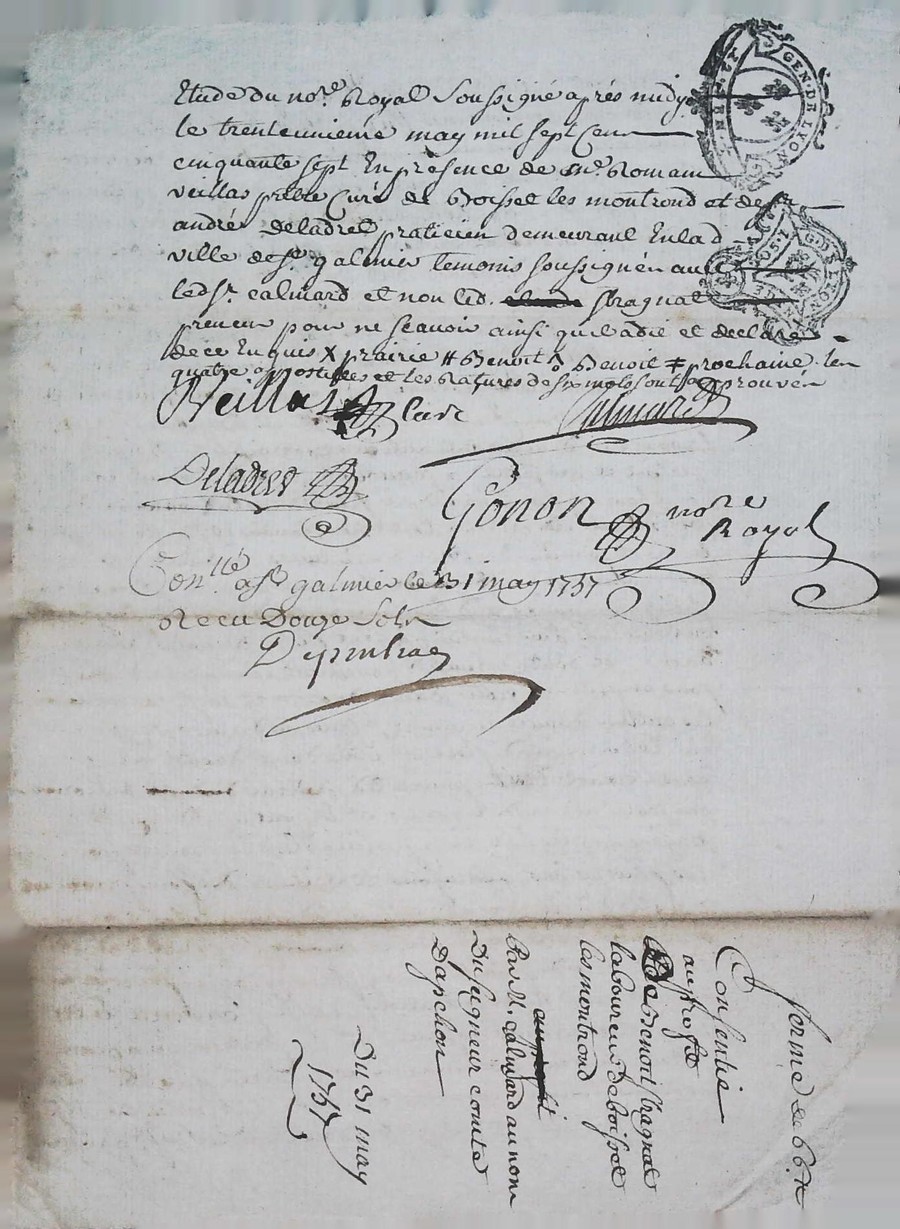 Etude du no.re Royal soussigné après midy
le trente unieme may mil sept Cens
cinquante sept En présence de Mre Romain
veillas prêtre Curé de Boisset les montrond et de sr
andré deladret praticien demeurant En lad
ville de st galmier temoins soussignén avec
led sr calmard et non led. Chagnat
preneur pour ne scavoir ainsi quil a dit et declaré
de ce Enquis X prairie # Benoit Benoit ‡ prochaine len
quatre apostilles et les Ratures de six mots sont approuvén
Veillas Curé
Calmard
Deladret
Gonon no.re Royal
Con.llé a st galmier le 31 may 1757
Recu Douze Soln
GEN · DE LYON
ferme de 66 #
Consentie
au profit
de Benoit Chagnat
laboureur de boisset
les montrond
Par M. calmard au nom
Du seigneur comte
Dapchon
Du 31 may
1757